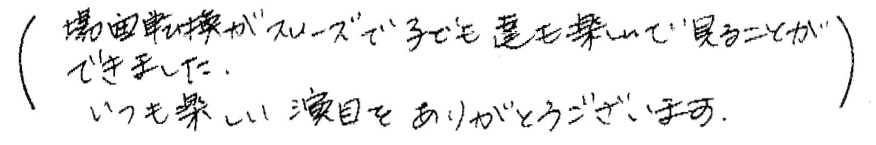 場面転換がスムーズで子ども達も楽しんで見ることが
できました.
いつも楽しい演目をありがとうございます.